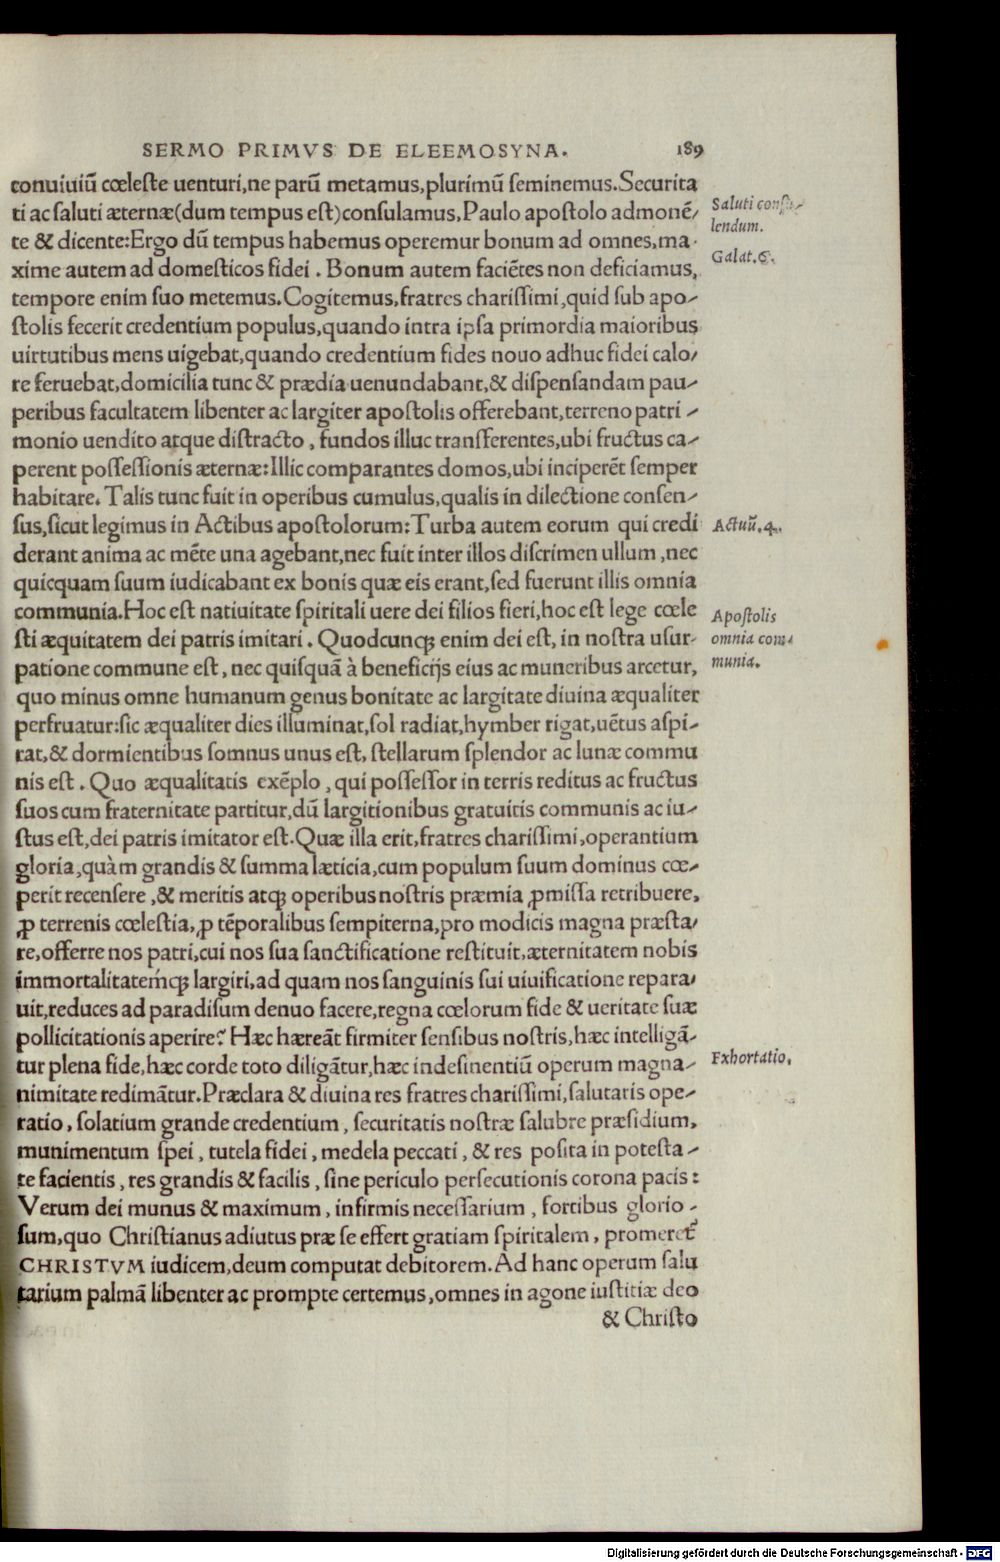 SERMO PRIMVS DE ELEEMOSYNA. 189
conuiuiũ cœleste uenturi,ne parũ metamus,plurimũ seminemus.Securita
ti ac saluti æternæ(dum tempus est)consulamus,Paulo apostolo admonẽ/
te & dicente:Ergo dũ tempus habemus operemur bonum ad omnes,ma-
xime autem ad domesticos fidei . Bonum autem faciẽtes non deficiamus,
tempore enim suo metemus.Cogitemus,fratres charissimi,quid sub apo/
stolis fecerit credentium populus,quando intra ipsa primordia maioribus
uirtutibus mens uigebat,quando credentium fides nouo adhuc fidei calo/
re feruebat,domicilia tunc & prædia uenundabant,& dispensandam pau/
peribus facultatem libenter ac largiter apostolis offerebant,terreno patri /
monio uendito atque distracto , fundos illuc transferentes,ubi fructus ca/
perent possessionis æternæ:Illic comparantes domos,ubi inciperẽt semper
habitare. Talis tunc fuit in operibus cumulus,qualis in dilectione consen/
sus,sicut legimus in Actibus apostolorum:Turba autem eorum qui credi
derant anima ac mẽte una agebant,nec fuit inter illos discrimen ullum ,nec
quicquam suum iudicabant ex bonis quæ eis erant,sed fuerunt illis omnia
communia.Hoc est natiuitate spiritali uere dei filios fieri,hoc est lege cœle
sti æquitatem dei patris imitari . Quodcunq; enim dei est, in nostra usur-
patione commune est , nec quisquã à beneficijs eius ac muneribus arcetur,
quo minus omne humanum genus bonitate ac largitate diuina æqualiter
perfruatur:sic æqualiter dies illuminat,sol radiat,hymber rigat,uẽtus aspi/
rat,& dormientibus somnus unus est, stellarum splendor ac lunæ commu
nis est . Quo æqualitatis exẽplo , qui possessor in terris reditus ac fructus
suos cum fraternitate partitur,dũ largitionibus gratuitis communis ac iu/
stus est,dei patris imitator est.Quæ illa erit,fratres charissimi,operantium
gloria,quàm grandis & summa læticia,cum populum suum dominus cœ/
perit recensere ,& meritis atq; operibus nostris præmia ꝓmissa retribuere,
ꝓ terrenis cœlestia,ꝓ tẽporalibus sempiterna,pro modicis magna præsta/
re,offerre nos patri,cui nos sua sanctificatione restituit,æternitatem nobis
immortalitatemq́; largiri,ad quam nos sanguinis sui uiuificatione repara/
uit,reduces ad paradisum denuo facere,regna cœlorum fide & ueritate suæ
pollicitationis aperire? Hæc hæreãt firmiter sensibus nostris,hæc intelligã/
tur plena fide,hæc corde toto diligãtur,hæc indesinentiũ operum magna/
nimitate redimãtur.Præclara & diuina res fratres charissimi,salutaris ope/
ratio , solatium grande credentium , securitatis nostræ salubre præsidium,
munimentum spei , tutela fidei , medela peccati , & res posita in potesta /
te facientis , res grandis & facilis , sine periculo persecutionis corona pacis:
Verum dei munus & maximum , infirmis necessarium , fortibus glorio -
sum,quo Christianus adiutus præ se effert gratiam spiritalem , promeret᷑
CHRISTVM iudicem,deum computat debitorem. Ad hanc operum salu
tarium palmã libenter ac prompte certemus,omnes in agone iustitiæ deo
& Christo
Saluti consu/
lendum.
Galat.6.
Actuũ.4.
Apostolis
omnia com/
munia.
Exhortatio.
Digitalisierung gefördert durch die Deutsche Forschungsgemeinschaft - DFG